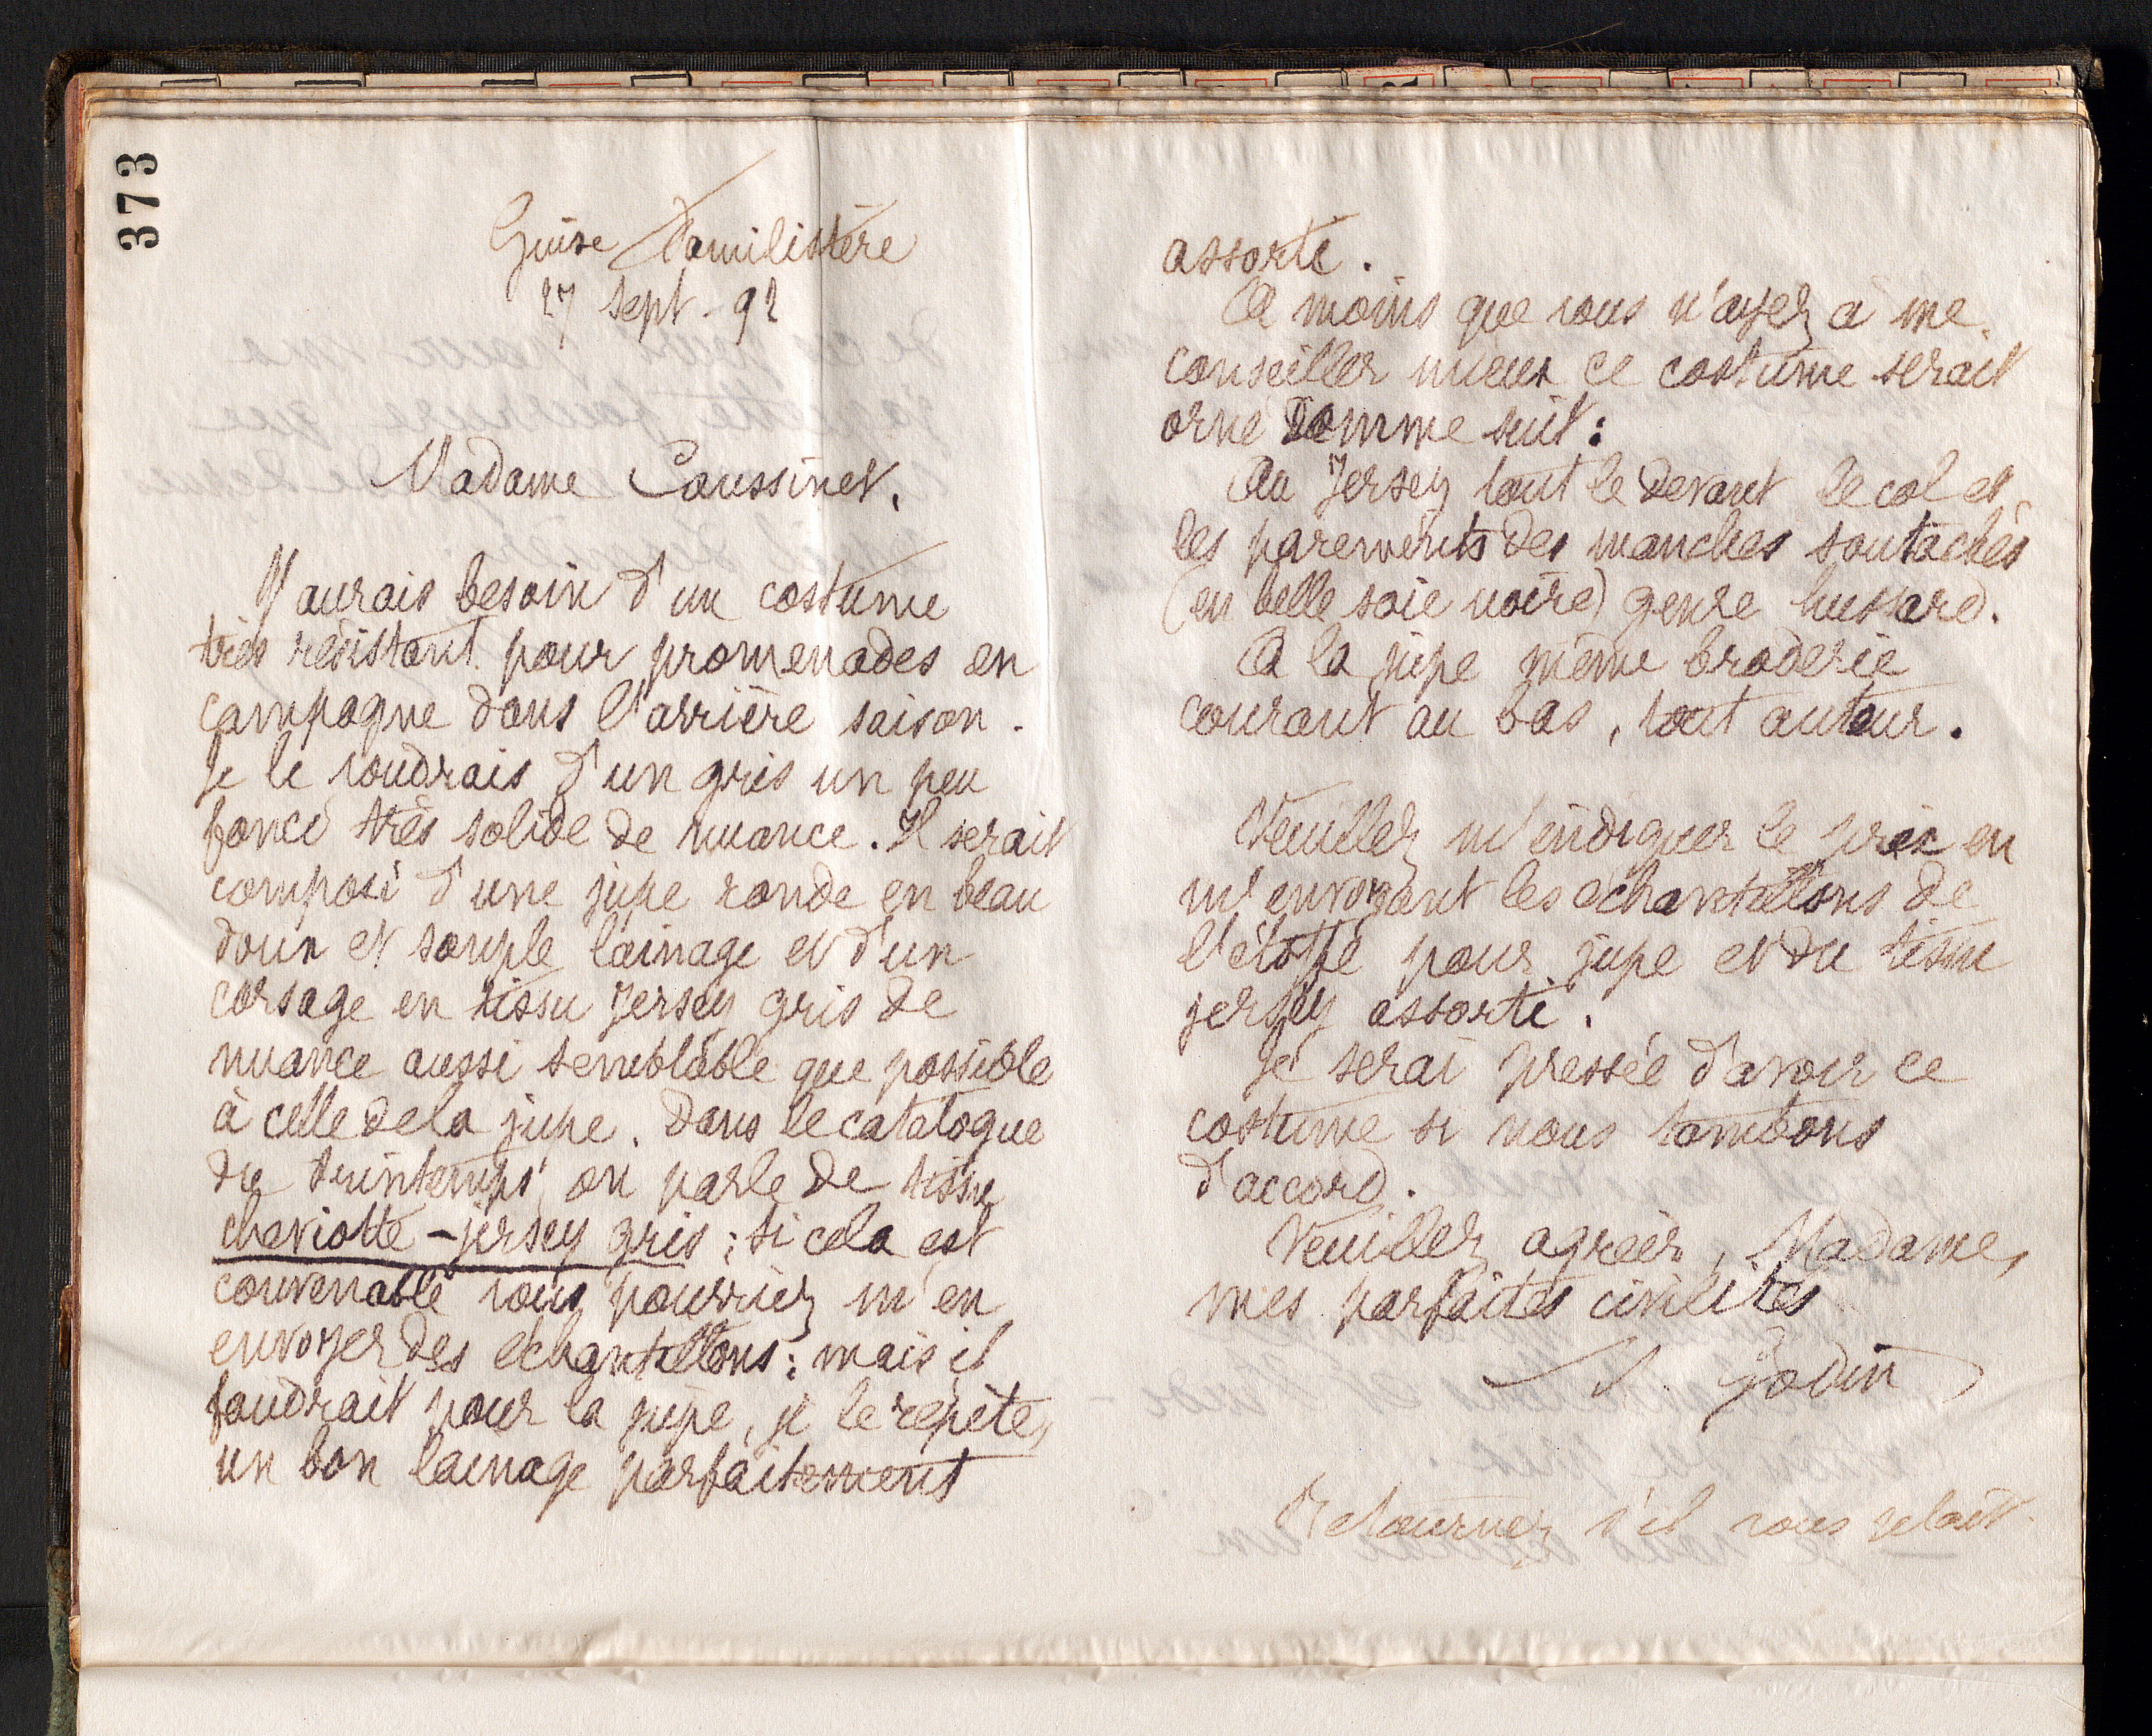 373
Guise Familistère
27 sept. 92
Madame Coussinet,
J'aurais besoin d'un costume
très résistant pour promenades en
campagne dans l'arrière saison.
Je le voudrais d'un gris un peu
foncé très solide de nuance. Il serait
composé d'une jupe ronde en beau
doux et souple lainage et d'un
corsage en tissu jersey gris de
nuance aussi semblable que possible
à celle de la jupe. Dans le catalogue
du Printemps on parle de tissu
cheviotte-jersey gris ; si cela est
convenable vous pourriez m'en
envoyer des échantillons ; mais il
faudrait pour la jupe, je le répète,
un bon lainage parfaitement
assorti.
A moins que vous n'ayez à me
conseiller mieux ce costume serait
orné comme suit :
Au Jersey tout le devant le col et
les parements des manches soutachés
(en belle soie noire) genre hussard.
A la jupe même broderie
courant au bas, tout autour.
Veuillez m'indiquer le prix en
m'envoyant les échantillons de
l'étoffe pour jupe et du tissu
jersey assorti.
Je serai pressée d'avoir ce
costume si nous tombons
d'accord.
Veuillez agréer, Madame,
mes parfaites civilités
Godin
Retournez s'il vous plait.